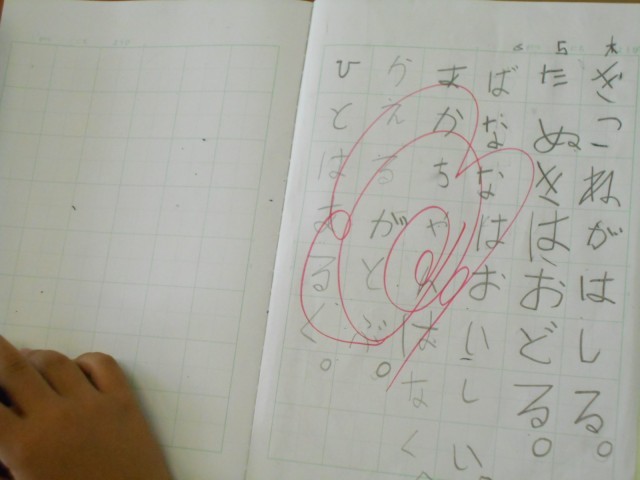 6 5 木
きつねがはしる。
たぬきはおどる。
ばななはおいしい
あかちゃんはなく。
かえるがとぶ。
ひとはあるく。